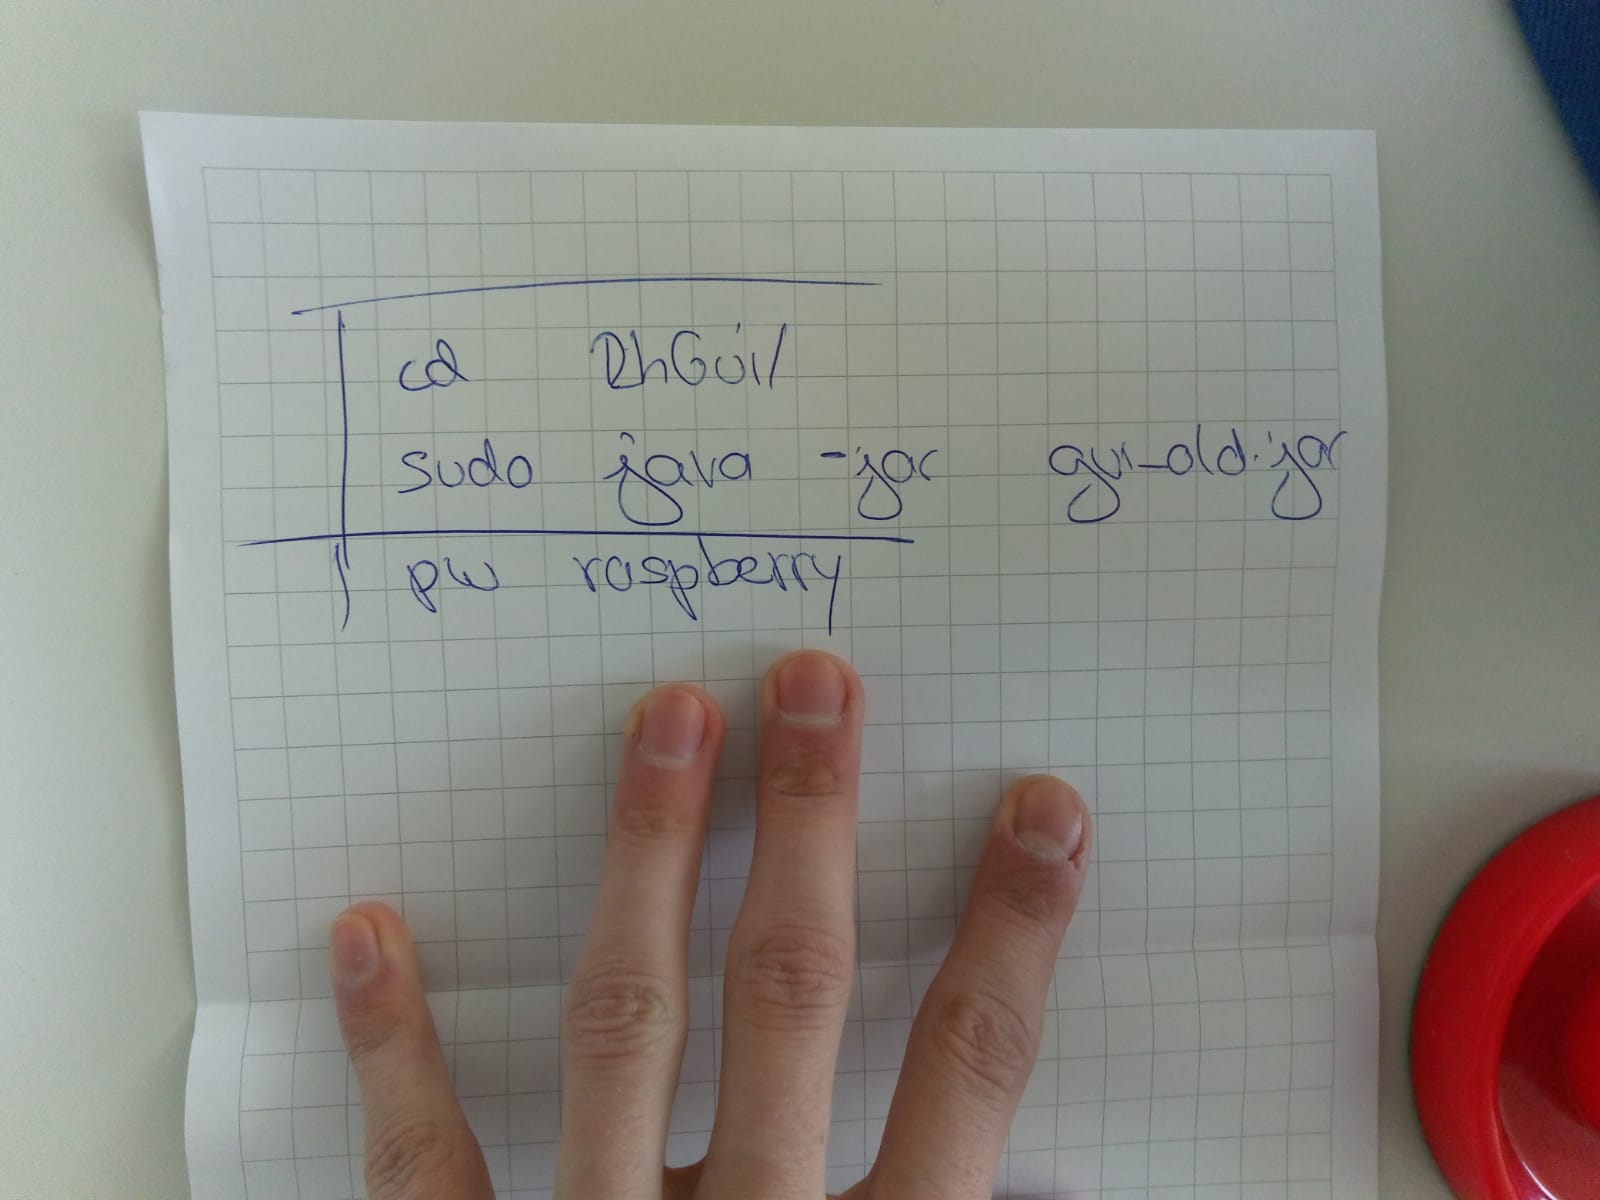 cd RhGui/
sudo java -jar gui_old.jar
pw raspberry